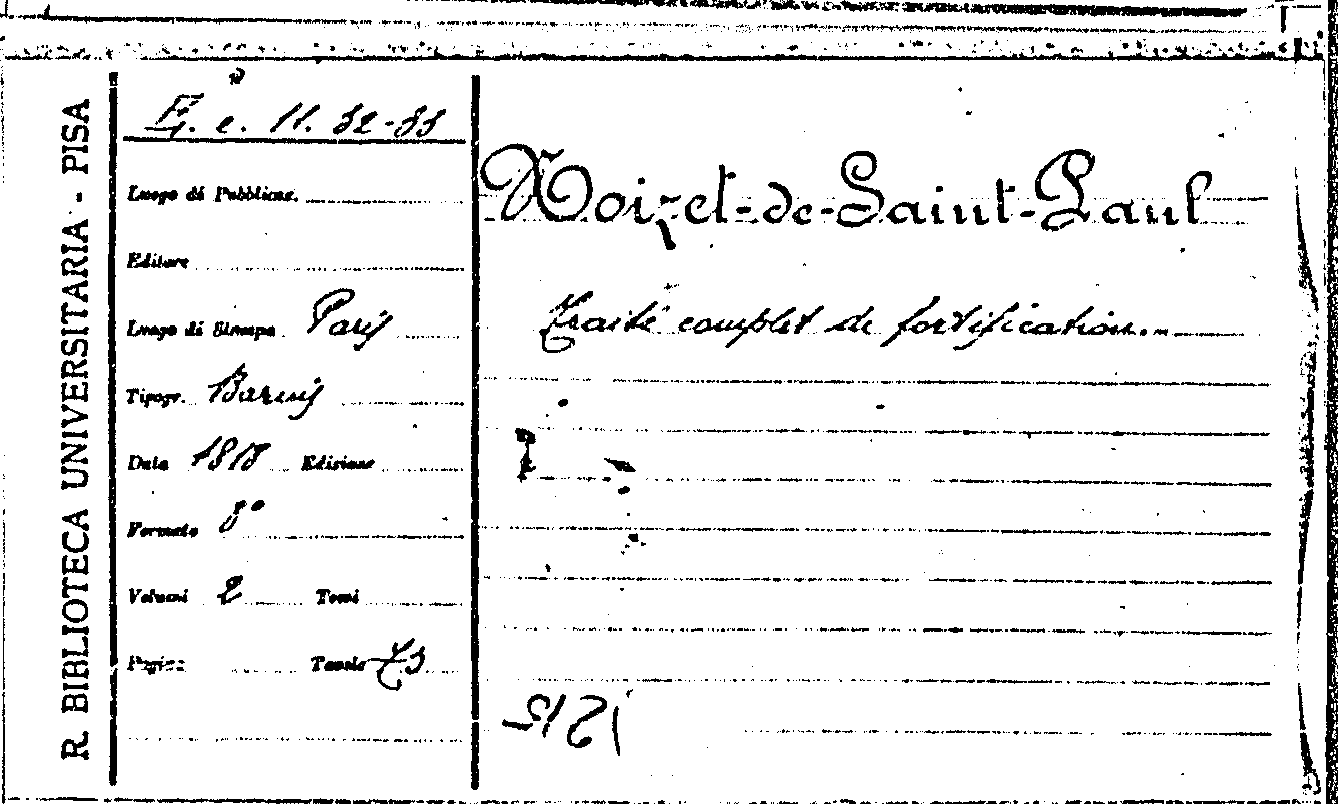 R. BIBLIOTECA UNIVERSITARIA - PISA
E. c. 11. 32-33
Luogo di Pubblicaz.
Editore
Luogo di Stampa Parij
Tipogr. Barnij
Data 1818 Edizione
Formato 8°
Volumi 2 Tomi
Pagine Tavole
Noizet-de-Saint-Paul
Traité complet de fortification.